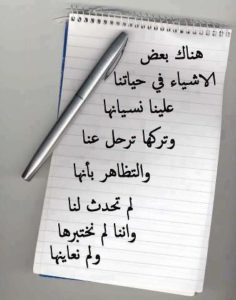 هناك بعض
الاشياء في حياتنا
علينا نسيانها
وتركها ترحل عنا
والتظاهر بأنها
لم تحدث لنا
واننا لم نختبرها
ولم نعاينها